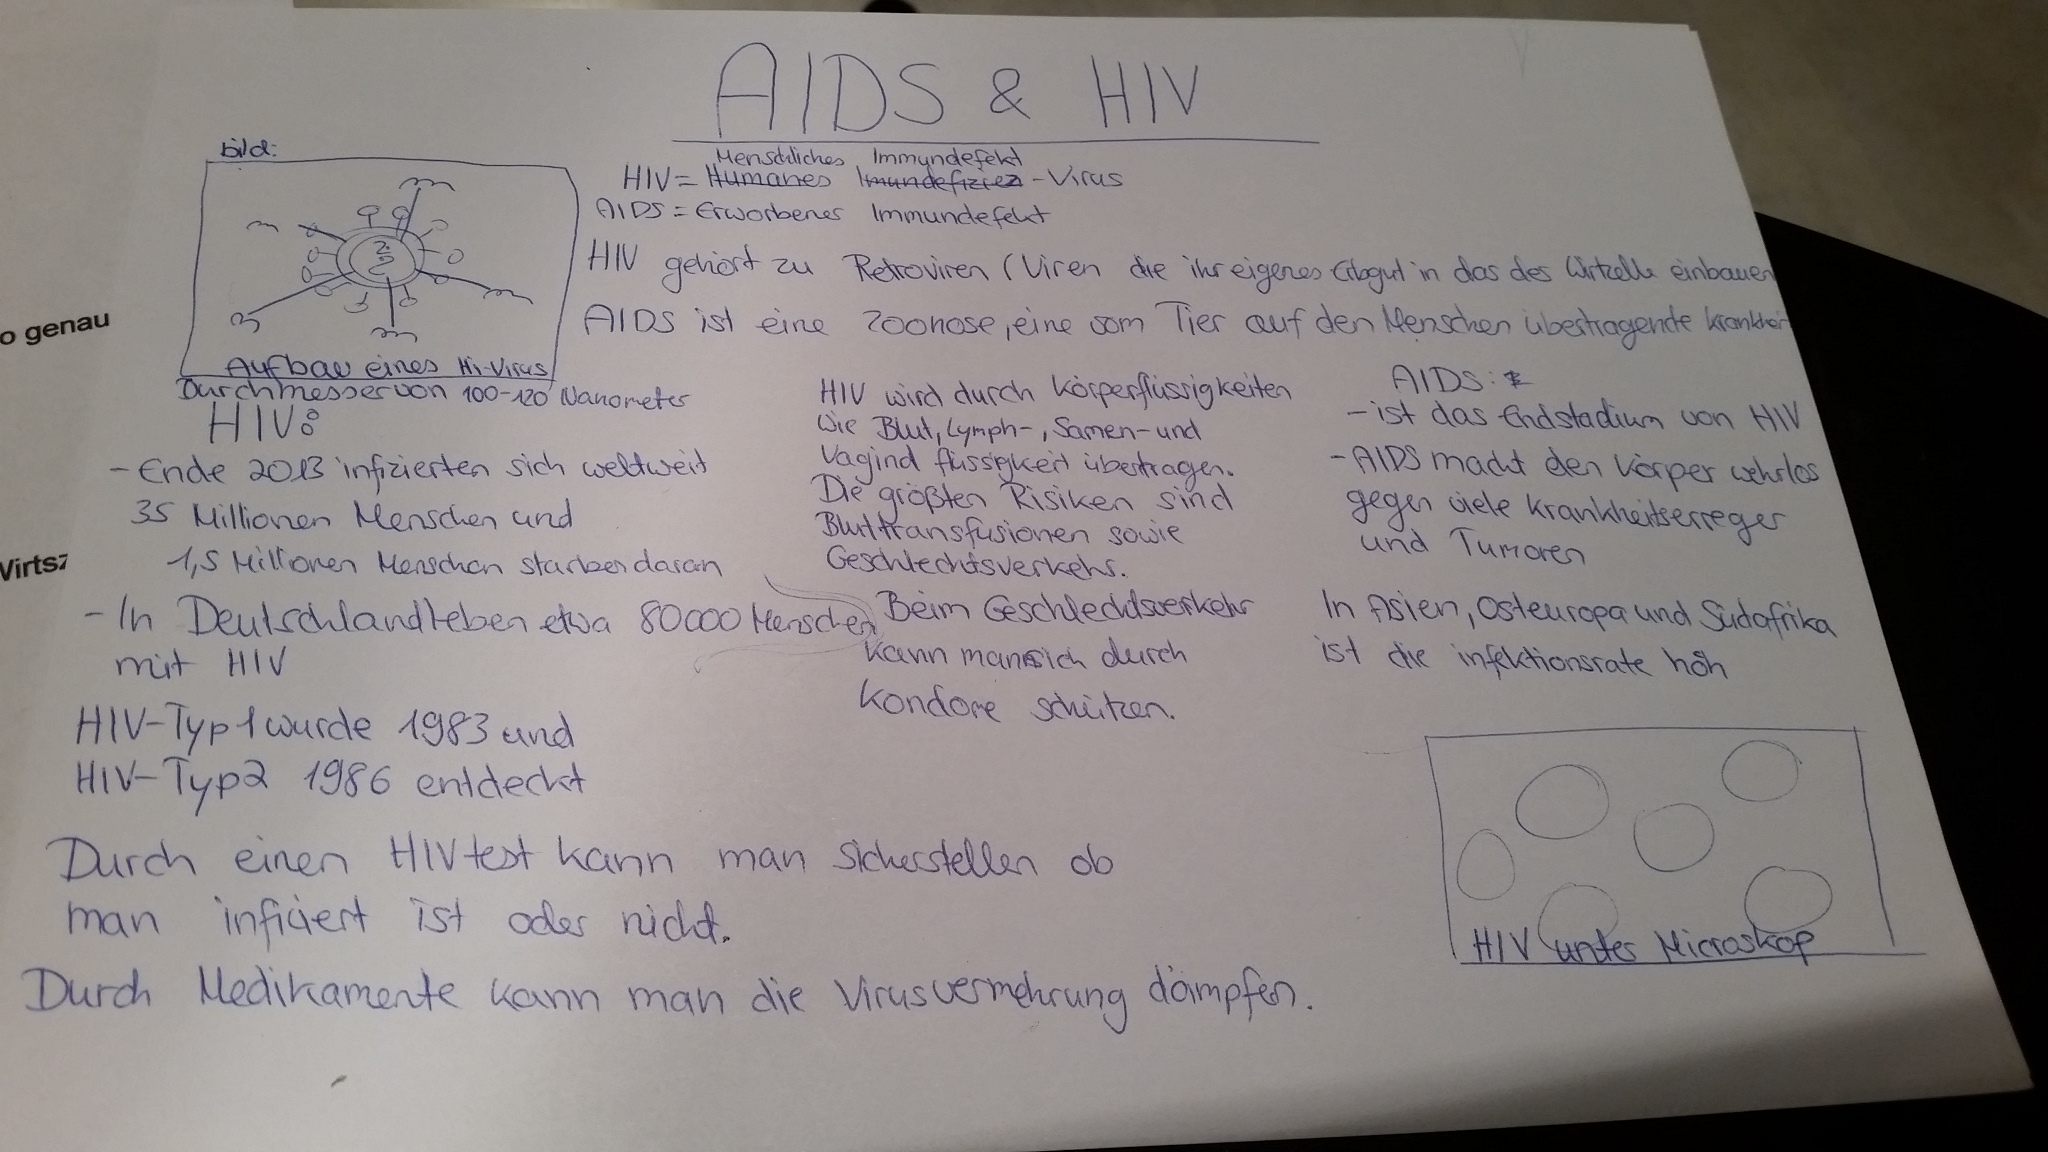 AIDS & HIV
bild:
Aufbau eines Hi-Virus
Durchmesser von 100-120 Nanometer
Menschliches Immundefekt
HIV = Humanes Imundefiziez - Virus
AIDS = Erworbener Immundefekt
HIV gehört zu Retroviren (Viren die ihr eigenes Erbgut in das des Wirtzelle einbauen
AIDS ist eine Zoonose, eine vom Tier auf den Menschen übertragende Krankhei
HIV:
- Ende 2013 infizierten sich weltweit
35 Millionen Menschen und
1,5 Millionen Menschen starben daran
- In Deutschland leben etwa 80000 Menschen
mit HIV
HIV-Typ 1 wurde 1983 und
HIV-Typ 2 1986 entdeckt
HIV wird durch Körperflüssigkeiten
wie Blut, Lymph-, Samen- und
Vaginal flüssigkeit übertragen.
Die größten Risiken sind
Bluttransfusionen sowie
Geschlechtsverkehr.
Beim Geschlechtsverkehr
kann man sich durch
Kondome schützen.
AIDS:
- ist das Endstadium von HIV
- AIDS macht den Körper wehrlos
gegen viele Krankheitserreger
und Tumoren
In Asien, Osteuropa und Südafrika
ist die infektionsrate hoh
Durch einen HIV test kann man sicherstellen ob
man infiziert ist oder nicht.
Durch Medikamente kann man die Virusvermehrung dämpfen.
HIV unter Microskop
o genau
Virtsz